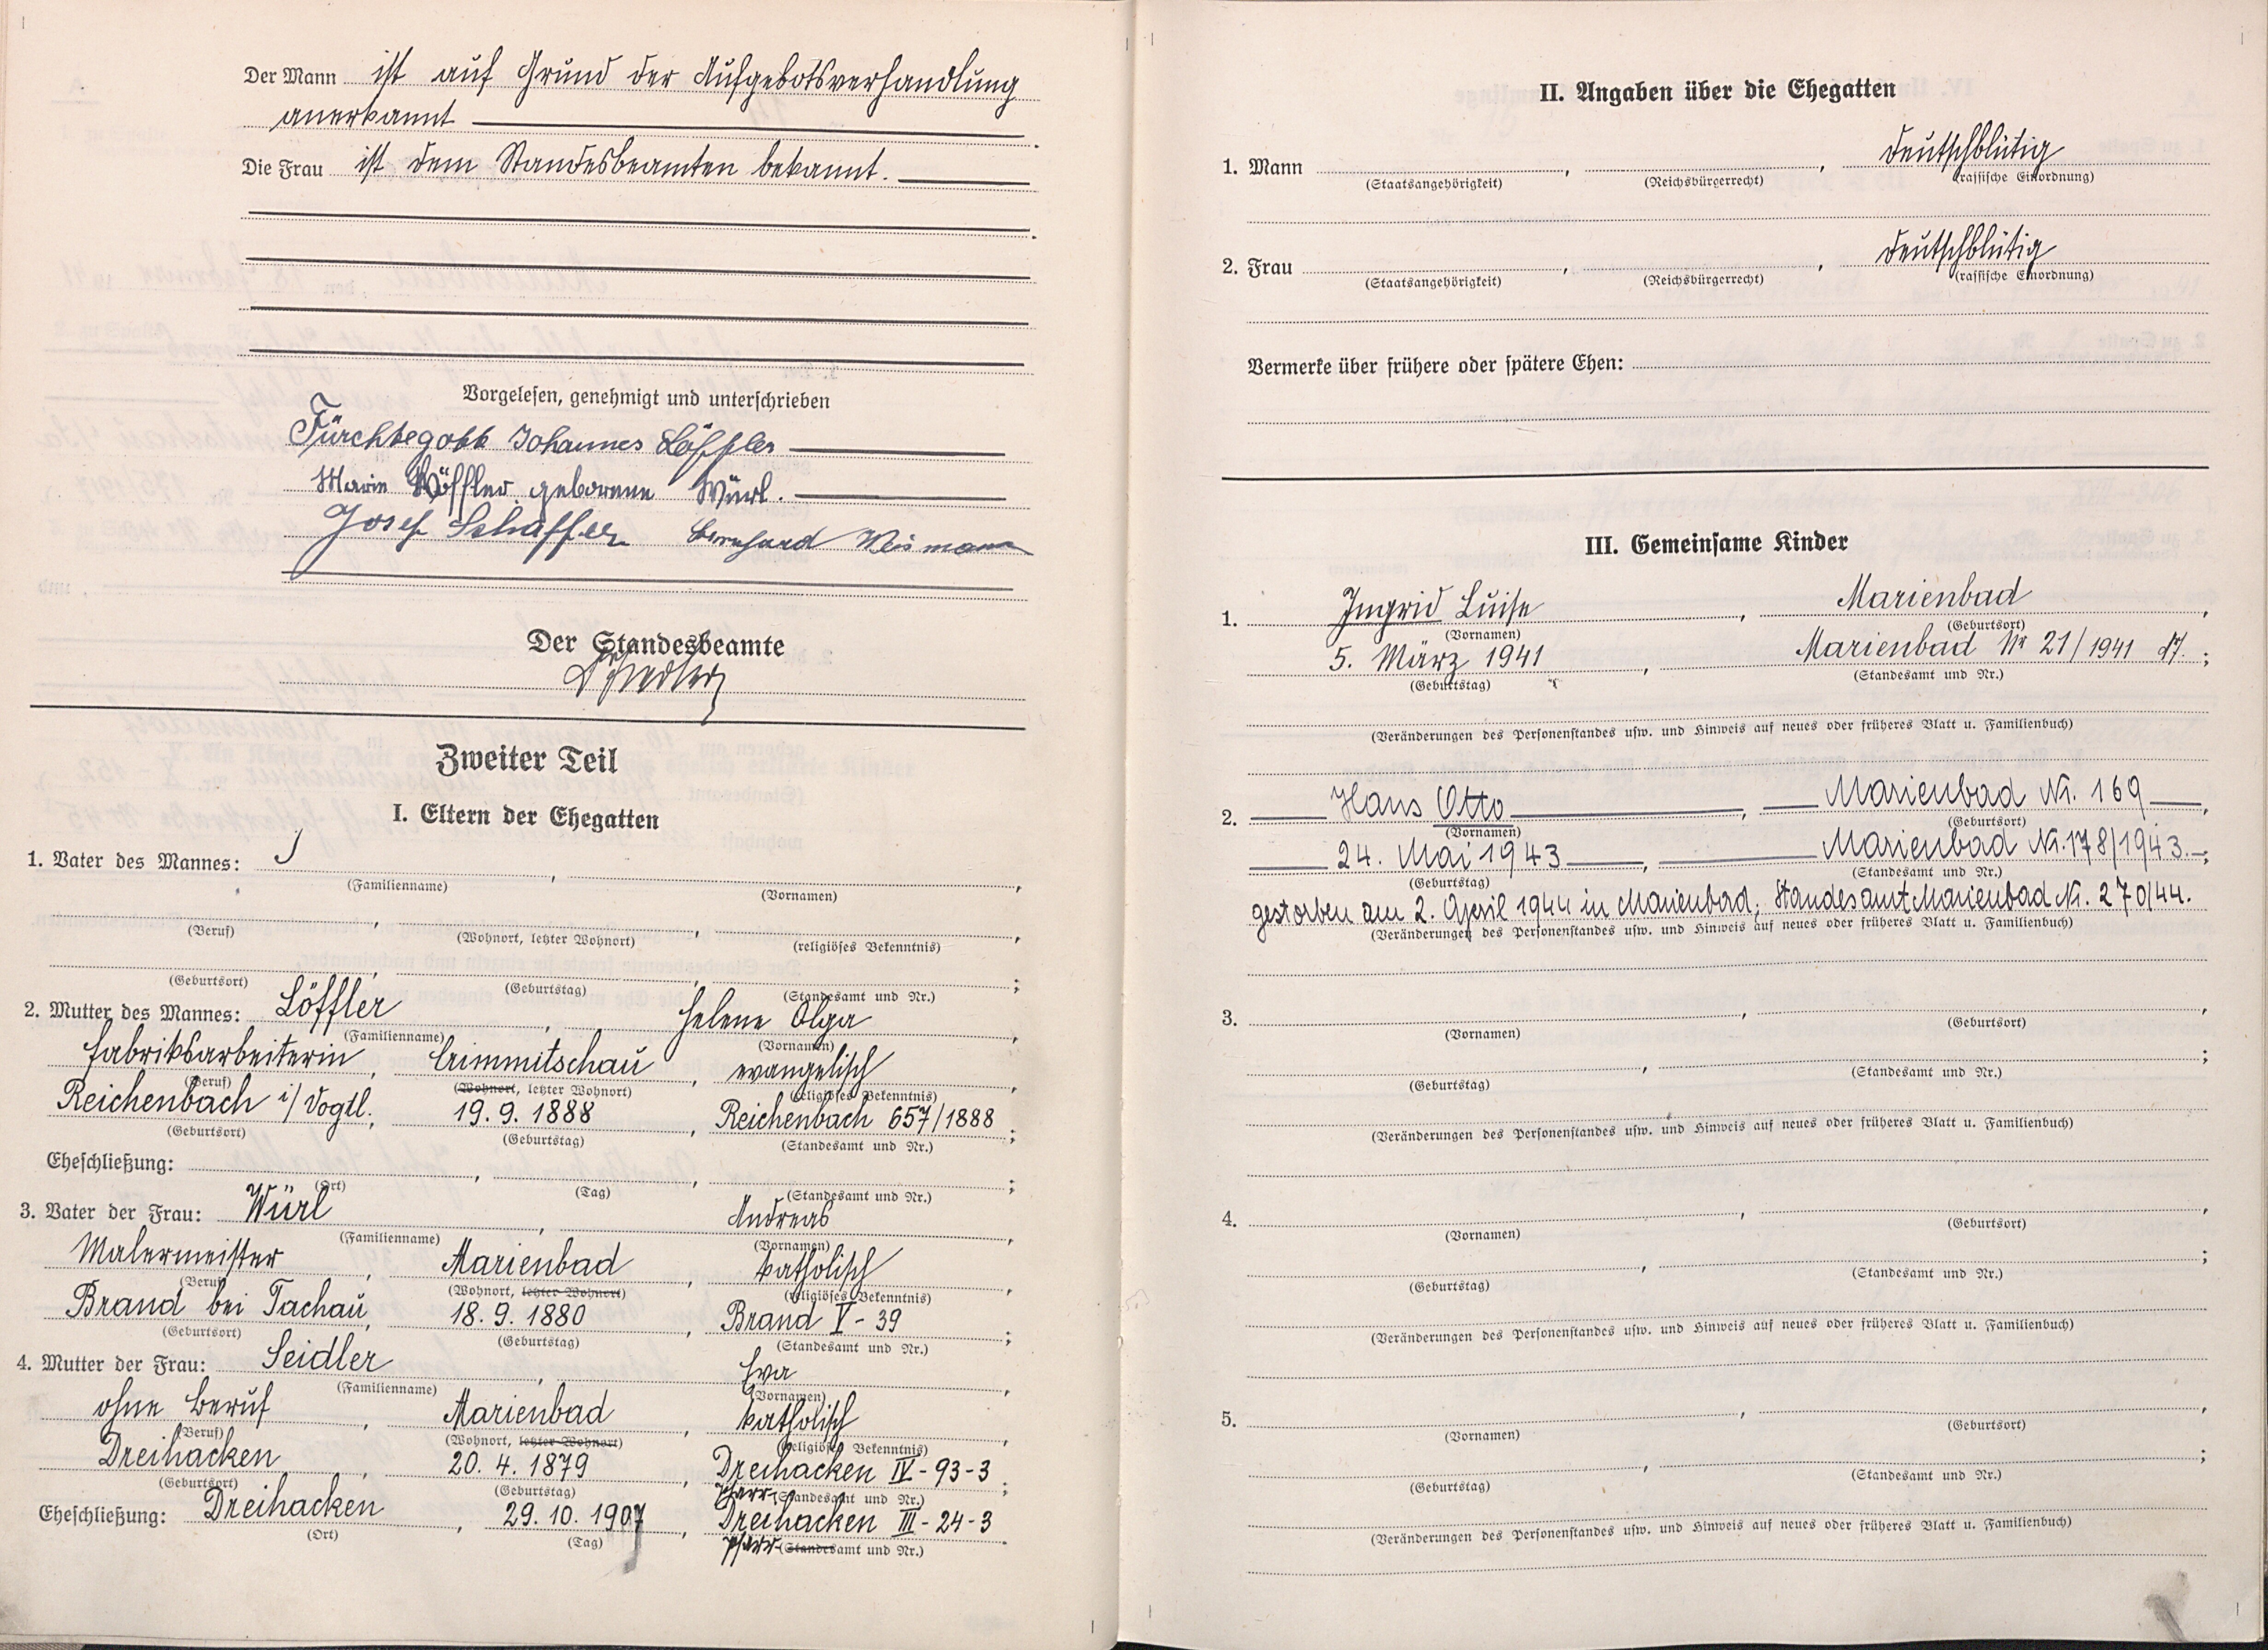 Der Mann ist auf Grund der Aufgebotsverhandlung
anerkannt
Die Frau ist dem Standesbeamten bekannt.
Vorgelesen, genehmigt und unterschrieben
Fürchtegott Johannes Löffler
Marie Löffler geborene Würl.
Josef Schaffer Bernhard Weismann
Der Standesbeamte
Zweiter Teil
I. Eltern der Ehegatten
1. Vater des Mannes:
(Familienname) (Vornamen)
(Beruf) (Wohnort, letzter Wohnort) (religiöses Bekenntnis)
(Geburtsort) (Geburtstag) (Standesamt und Nr.)
2. Mutter des Mannes: Löffler, Helene Olga,
(Familienname) (Vornamen)
Fabriksarbeiterin, Crimmitschau, evangelisch,
(Beruf) (Wohnort, letzter Wohnort) (religiöses Bekenntnis)
Reichenbach i/Vogtl., 19.9.1888, Reichenbach 657/1888;
(Geburtsort) (Geburtstag) (Standesamt und Nr.)
Eheschließung:
(Ort) (Tag) (Standesamt und Nr.)
3. Vater der Frau: Würl, Andreas,
(Familienname) (Vornamen)
Malermeister, Marienbad, katholisch,
(Beruf) (Wohnort, letzter Wohnort) (religiöses Bekenntnis)
Brand bei Tachau, 18.9.1880, Brand V-39;
(Geburtsort) (Geburtstag) (Standesamt und Nr.)
4. Mutter der Frau: Seidler, Eva,
(Familienname) (Vornamen)
ohne Beruf, Marienbad, katholisch,
(Beruf) (Wohnort, letzter Wohnort) (religiöses Bekenntnis)
Dreihacken, 20.4.1879, Dreihacken IV-93-3;
(Geburtsort) (Geburtstag) Pfarr- (Standesamt und Nr.)
Eheschließung: Dreihacken, 29.10.1907, Dreihacken III-24-3.
(Ort) (Tag) Pfarr- (Standesamt und Nr.)
II. Angaben über die Ehegatten
1. Mann, , deutschblütig
(Staatsangehörigkeit) (Reichsbürgerrecht) (rassische Einordnung)
2. Frau, , deutschblütig
(Staatsangehörigkeit) (Reichsbürgerrecht) (rassische Einordnung)
Vermerke über frühere oder spätere Ehen:
III. Gemeinsame Kinder
1. Ingrid Luise, Marienbad,
(Vornamen) (Geburtsort)
5. März 1941, Marienbad Nr 21/1941
(Geburtstag) (Standesamt und Nr.)
(Veränderungen des Personenstandes usw. und Hinweis auf neues oder früheres Blatt u. Familienbuch)
2. Hans Otto, Marienbad Nr. 169,
(Vornamen) (Geburtsort)
24. Mai 1943, Marienbad Nr. 178/1943.;
(Geburtstag) (Standesamt und Nr.)
gestorben am 2. April 1944 in Marienbad, Standesamt Marienbad Nr. 270/44.
(Veränderungen des Personenstandes usw. und Hinweis auf neues oder früheres Blatt u. Familienbuch)
3.
(Vornamen) (Geburtsort)
(Geburtstag) (Standesamt und Nr.)
(Veränderungen des Personenstandes usw. und Hinweis auf neues oder früheres Blatt u. Familienbuch)
4.
(Vornamen) (Geburtsort)
(Geburtstag) (Standesamt und Nr.)
(Veränderungen des Personenstandes usw. und Hinweis auf neues oder früheres Blatt u. Familienbuch)
5.
(Vornamen) (Geburtsort)
(Geburtstag) (Standesamt und Nr.)
(Veränderungen des Personenstandes usw. und Hinweis auf neues oder früheres Blatt u. Familienbuch)